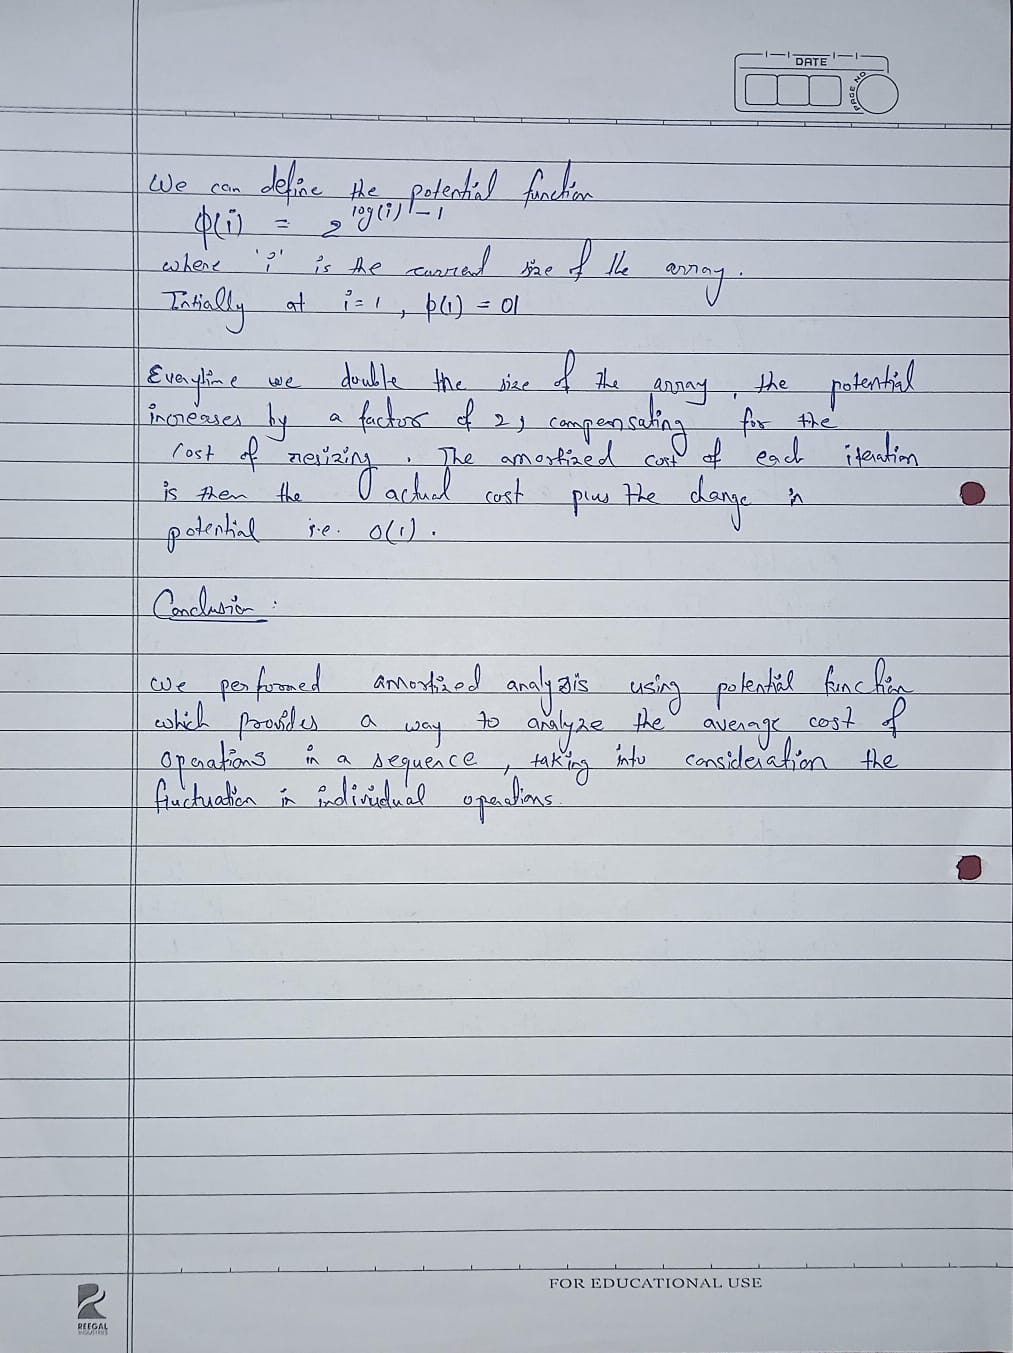 DATE
PAGE NO
We can define the potential function
ϕ(i) = 2^log(i) - 1
where 'i' is the current size of the array.
Intially at i=1, ϕ(1) = 01
Everytime we double the size of the array, the potential
increases by a factor of 2, compensating for the
cost of resizing. The amortized cost of each iteration
is then the actual cost plus the change in
potential i.e. O(1).
Conclusion:
We performed amortized analysis using potential function
which provides a way to analyze the average cost of
operations in a sequence, taking into consideration the
fluctuation in individual operations.
FOR EDUCATIONAL USE
REEGAL
INDUSTRIES